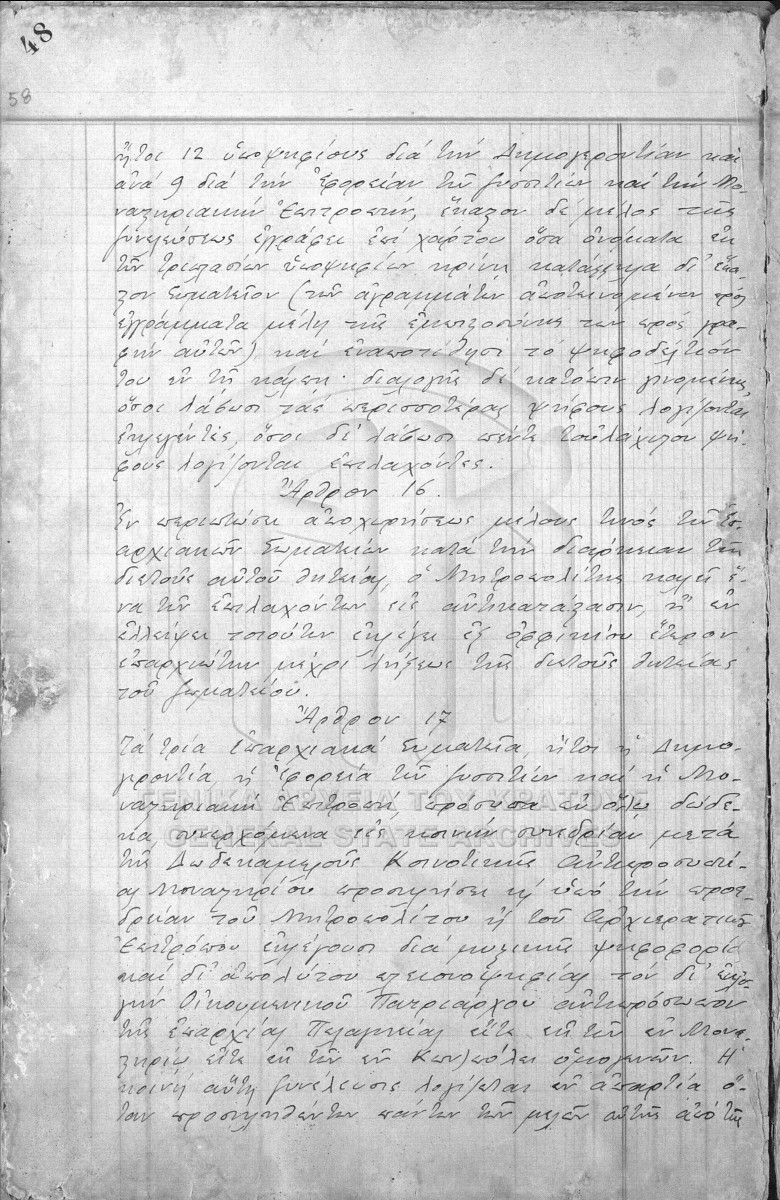 48
58
ἤτοι 12 ὑποψηφίους διά τήν Δημογεροντίαν καί
ἀνά 9 διά τήν Ἐφορείαν τῶν ξυσσιτίων καί τήν Μο-
ναστηριακήν Ἐπιτροπήν, ἕκαστον δέ μέλος τῆς
ξυνελεύσεως ἐγγράφει ἐπί χάρτου ὅσα ὀνόματα ἐκ
τῶν τριπλασίων ὑποψηφίων κρίνῃ κατάλληλα δι' ἕκα-
στον Σωματεῖον (τῶν ἀγραμμάτων ἀποτεινομένων πρός
ἐγγράμματα μέλη τῆς ἐμπιστοσύνης των πρός γρα-
φήν αὐτῶν) καί ἐναποτίθησι τό ψηφοδέλτιόν
του ἐν τῇ κάλπῃ· διαλογῆς δέ κατόπιν γινομένης
ὅσοι λάβωσι τάς περισσοτέρας ψήφους λογίζονται
ἐκλεγέντες, ὅσοι δέ λάβωσι πέντε τοὐλάχιστον ψή-
φους λογίζονται ἐπιλαχόντες.
Ἄρθρον 16.
Ἐν περιπτώσει ἀποχωρήσεως μέλους τινός τῶν Ἐπ-
αρχιακῶν Σωματείων κατά τήν διάρκειαν τῆς
διετοῦς αὐτοῦ θητείας, ὁ Μητροπολίτης καλεῖ ἕ-
να τῶν ἐπιλαχόντων εἰς ἀντικατάστασιν, ἤ ἐν
ἐλλείψει τοιούτων ἐκλέγει ἐξ ὀφφικίου ἕτερον
ἐπαρχιώτην μέχρι λήξεως τῆς διετοῦς θητείας
τοῦ ξωματείου.
Ἄρθρον 17
Τά τρία ἐπαρχιακά Σωματεῖα, ἤτοι ἡ Δημο-
γεροντία, ἡ Ἐφορεία τῶν ξυσσιτίων καί ἡ Μο-
ναστηριακή Ἐπιτροπή, πρόσωπα ἐν ὅλῳ δώδε-
κα, συνερχόμενα εἰς κοινήν συνεδρίαν μετά
τῆς Δωδεκαμελοῦς Κοινοτικῆς Ἀντιπροσωπεί-
ας Μοναστηρίου προσκλήσει καί ὑπό τήν προε-
δρείαν τοῦ Μητροπολίτου ἤ τοῦ Ἀρχιερατικοῦ
Ἐπιτρόπου ἐκλέγουσι διά μυστικῆς ψηφοφορίας
καί δι' ἀπολύτου πλειονοψηφίας τόν δι' ἐκλο-
γήν Οἰκουμενικοῦ Πατριάρχου ἀντιπρόσωπον
τῆς ἐπαρχίας Πελαγωνείας εἴτε ἐκ τῶν ἐν Μονα-
στηρίῳ εἴτε ἐκ τῶν ἐν Κων)πόλει ὁμογενῶν. Ἡ
κοινή αὕτη ξυνέλευσις λογίζεται ἐν ἀπαρτίᾳ ὅ-
ταν προσκληθέντων πάντων τῶν μελῶν αὐτῆς ἀπό τῆς
ΓΕΝΙΚΑ ΑΡΧΕΙΑ ΤΟΥ ΚΡΑΤΟΥΣ
GENERAL STATE ARCHIVES